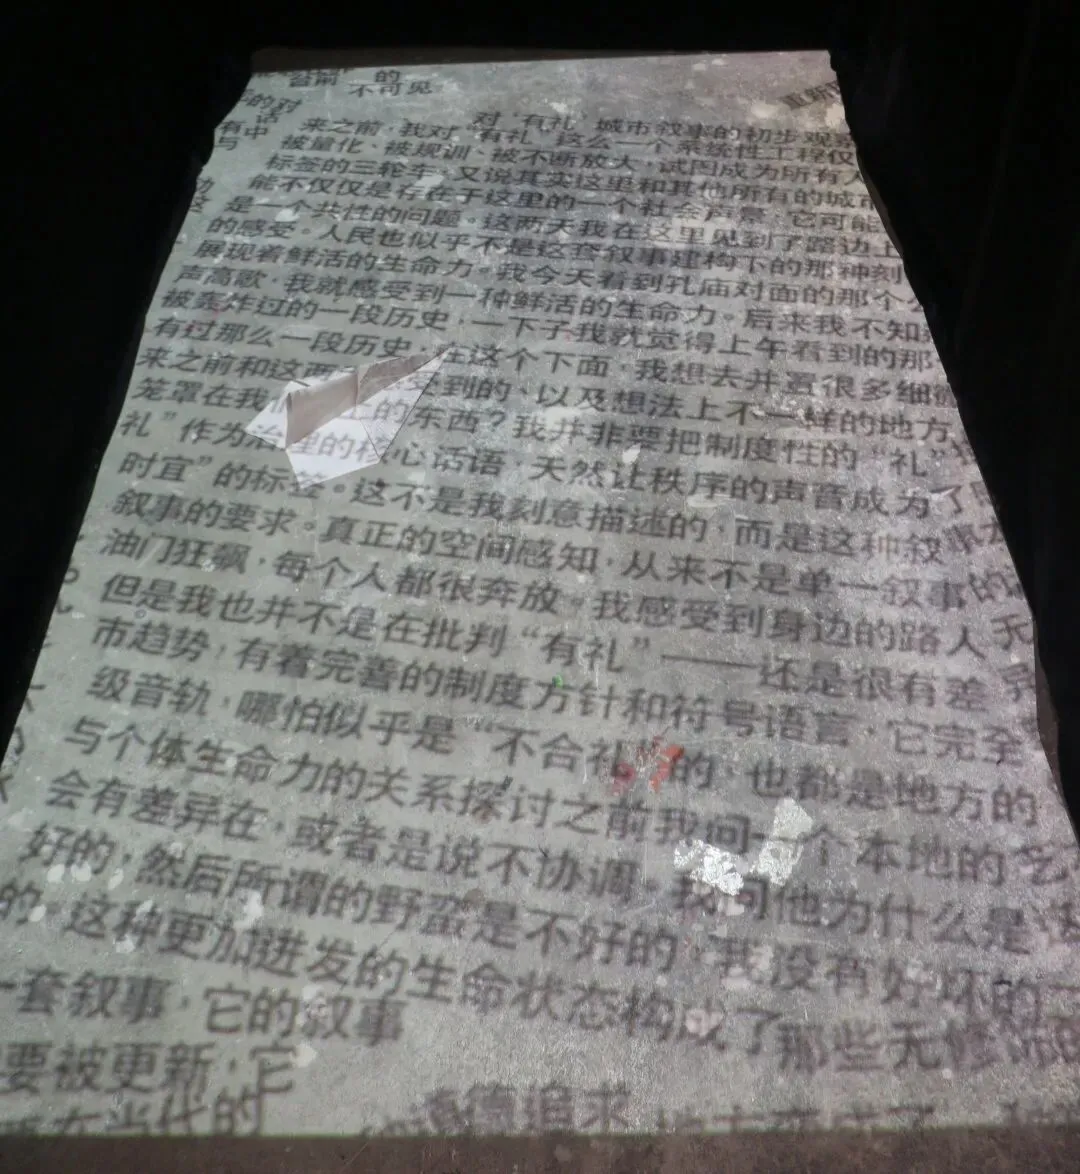 台前 的
不可见
的对
话
有中
与
重新
对“有礼”城市叙事的初步观察
来之前，我对“有礼”这么一个系统性工程仅
被量化、被规训、被不断放大，试图成为所有人
标签的三轮车，又说其实这里和其他所有的城市
能不仅仅是存在于这里的一个社会声景，它可能
是一个共性的问题。这两天我在这里见到了路边上
的感受。人民也似乎不是这套叙事建构下的那种刻
展现着鲜活的生命力。我今天看到孔庙对面的那个
声高歌，我就感受到一种鲜活的生命力。后来我不知
被轰炸过的一段历史，一下子我就觉得上午看到的那
有过那么一段历史，在这个下面，我想去并置很多细微
来之前和这两 受到的，以及想法上不一样的地方，
笼罩在我 上的东西？我并非要把制度性的“礼”
礼”作为治理的核心话语，天然让秩序的声音成为了
时宜”的标签。这不是我刻意描述的，而是这种叙事
叙事的要求。真正的空间感知，从来不是单一叙事的
油门狂飙，每个人都很奔放，我感受到身边的路人
但是我也并不是在批判“有礼”——还是很有差
市趋势，有着完善的制度方针和符号语言，它完全
级音轨，哪怕似乎是“不合礼”的，也都是地方的
与个体生命力的关系探讨之前我问一个本地的
会有差异在，或者是说不协调。我问他为什么是
好的，然后所谓的野蛮是不好的，我没有好坏的
的，这种更加迸发的生命状态构成了那些无修
一套叙事，它的叙事
要被更新，它
在当代的
追求